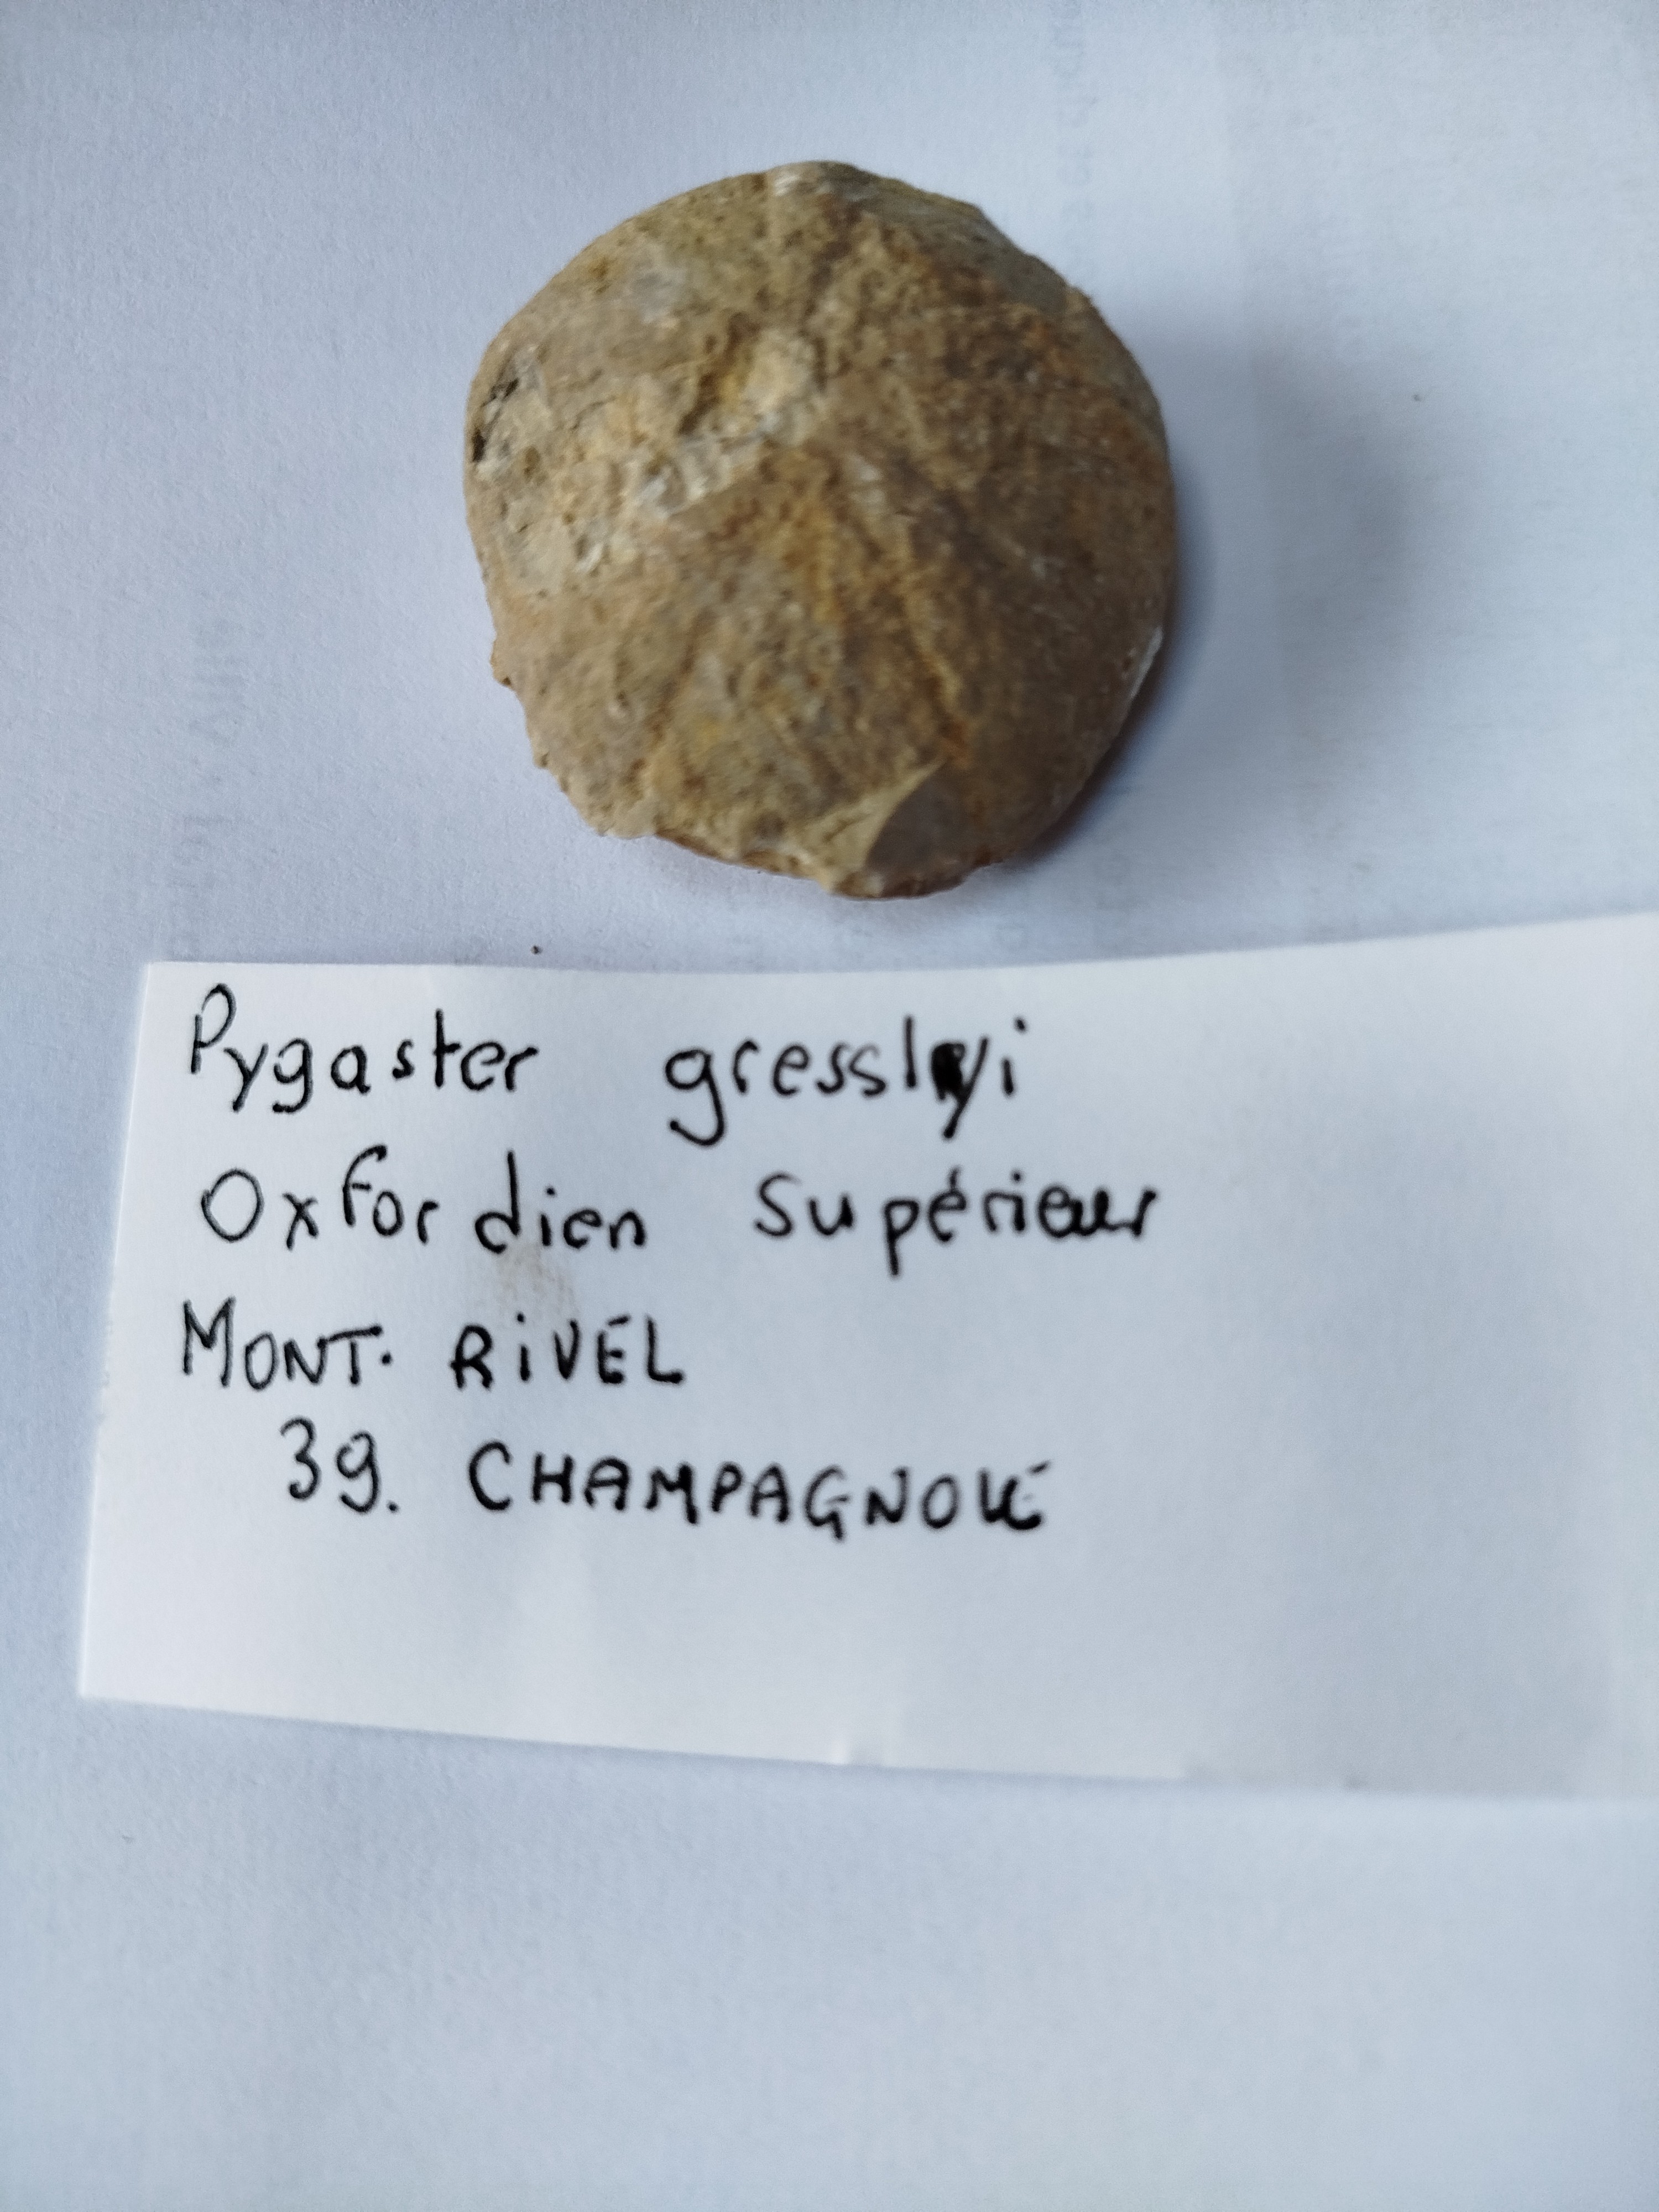 Pygaster gresslyi
Oxfordien Supérieur
MONT. RiVEL
39. CHAMPAGNOLE